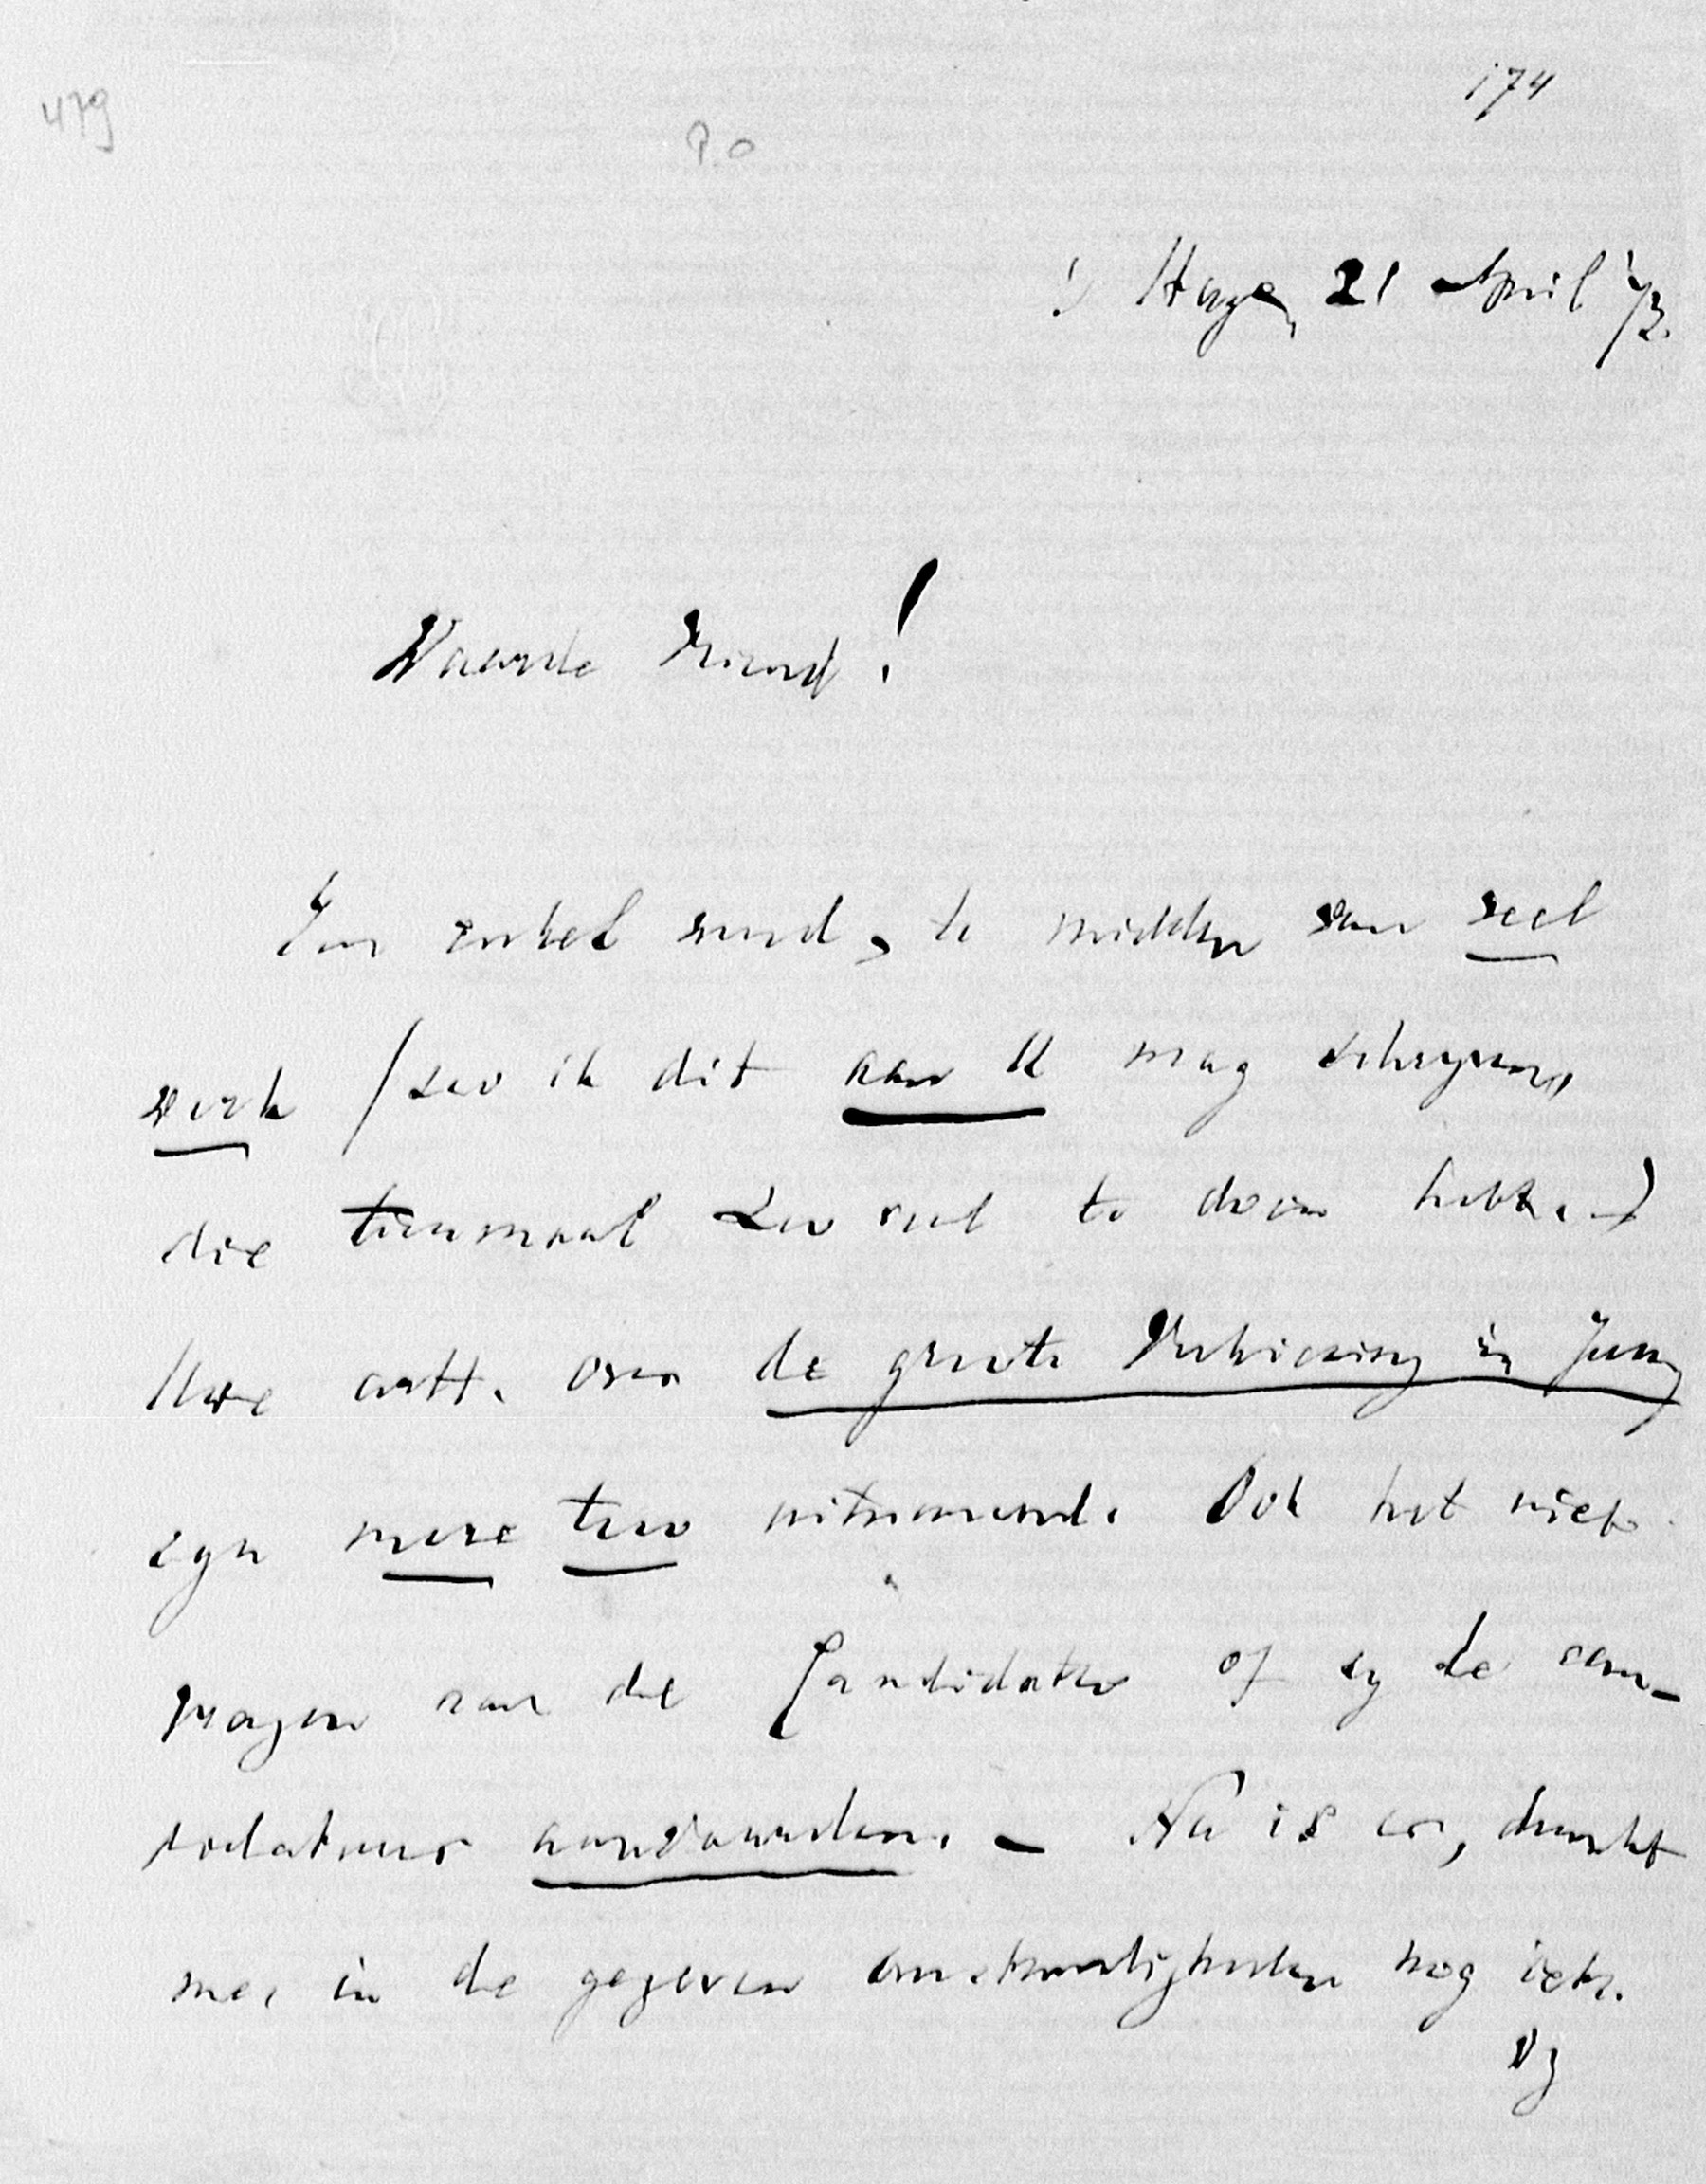 479
174
P.O
's Hage, 21 April '73.
Waarde Vriend!
Een enkel woord, te midden van veel
werk (zoo ik dit aan U mag schrijven,
die tienmaal zoo veel te doen hebt.)
Uwe artt. over de groote Verkiezing in Juny
zyn more tuo uitnemend. Ook het niet
vragen van de Candidaten of zy de can-
didatuur aanvaarden. - Nu is er, dunkt
me, in de gegeven omstandigheden nog iets.
Wy